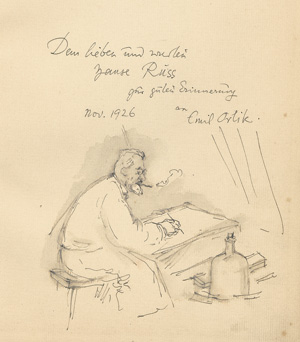 Dem lieben und werten
Hause Rüss
zur guten Erinnerung
an
Nov. 1926
Emil Orlik.